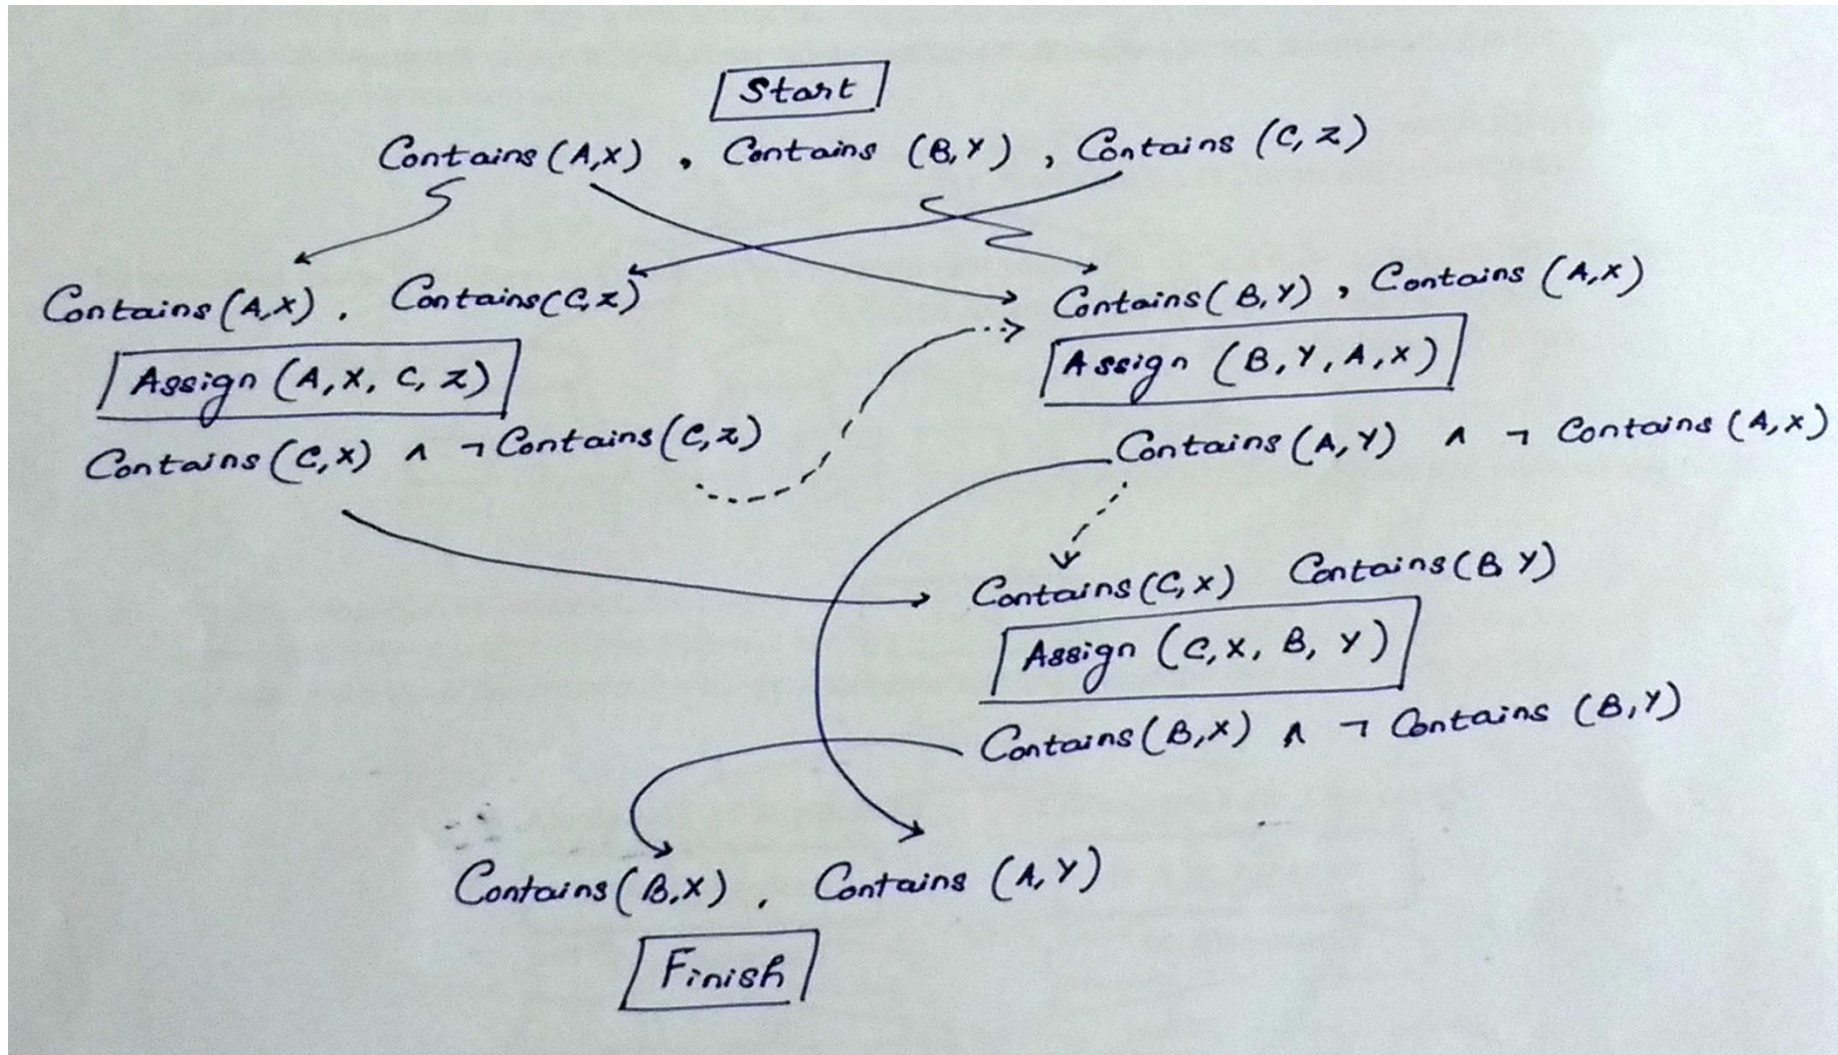 Start
Contains (A,X) , Contains (B,Y) , Contains (C,Z)
Contains (A,X) , Contains(C,Z)
Contains( B,Y) , Contains (A,X)
Assign (A,X, C, Z)
Assign (B,Y,A,X)
Contains (C,X) ∧ ¬ Contains(C,Z)
Contains (A,Y) ∧ ¬ Contains (A,X)
Contains(C,X) Contains(B Y)
Assign (C,X, B, Y)
Contains(B,X) ∧ ¬ Contains (B,Y)
Contains( B,X) , Contains (A,Y)
Finish